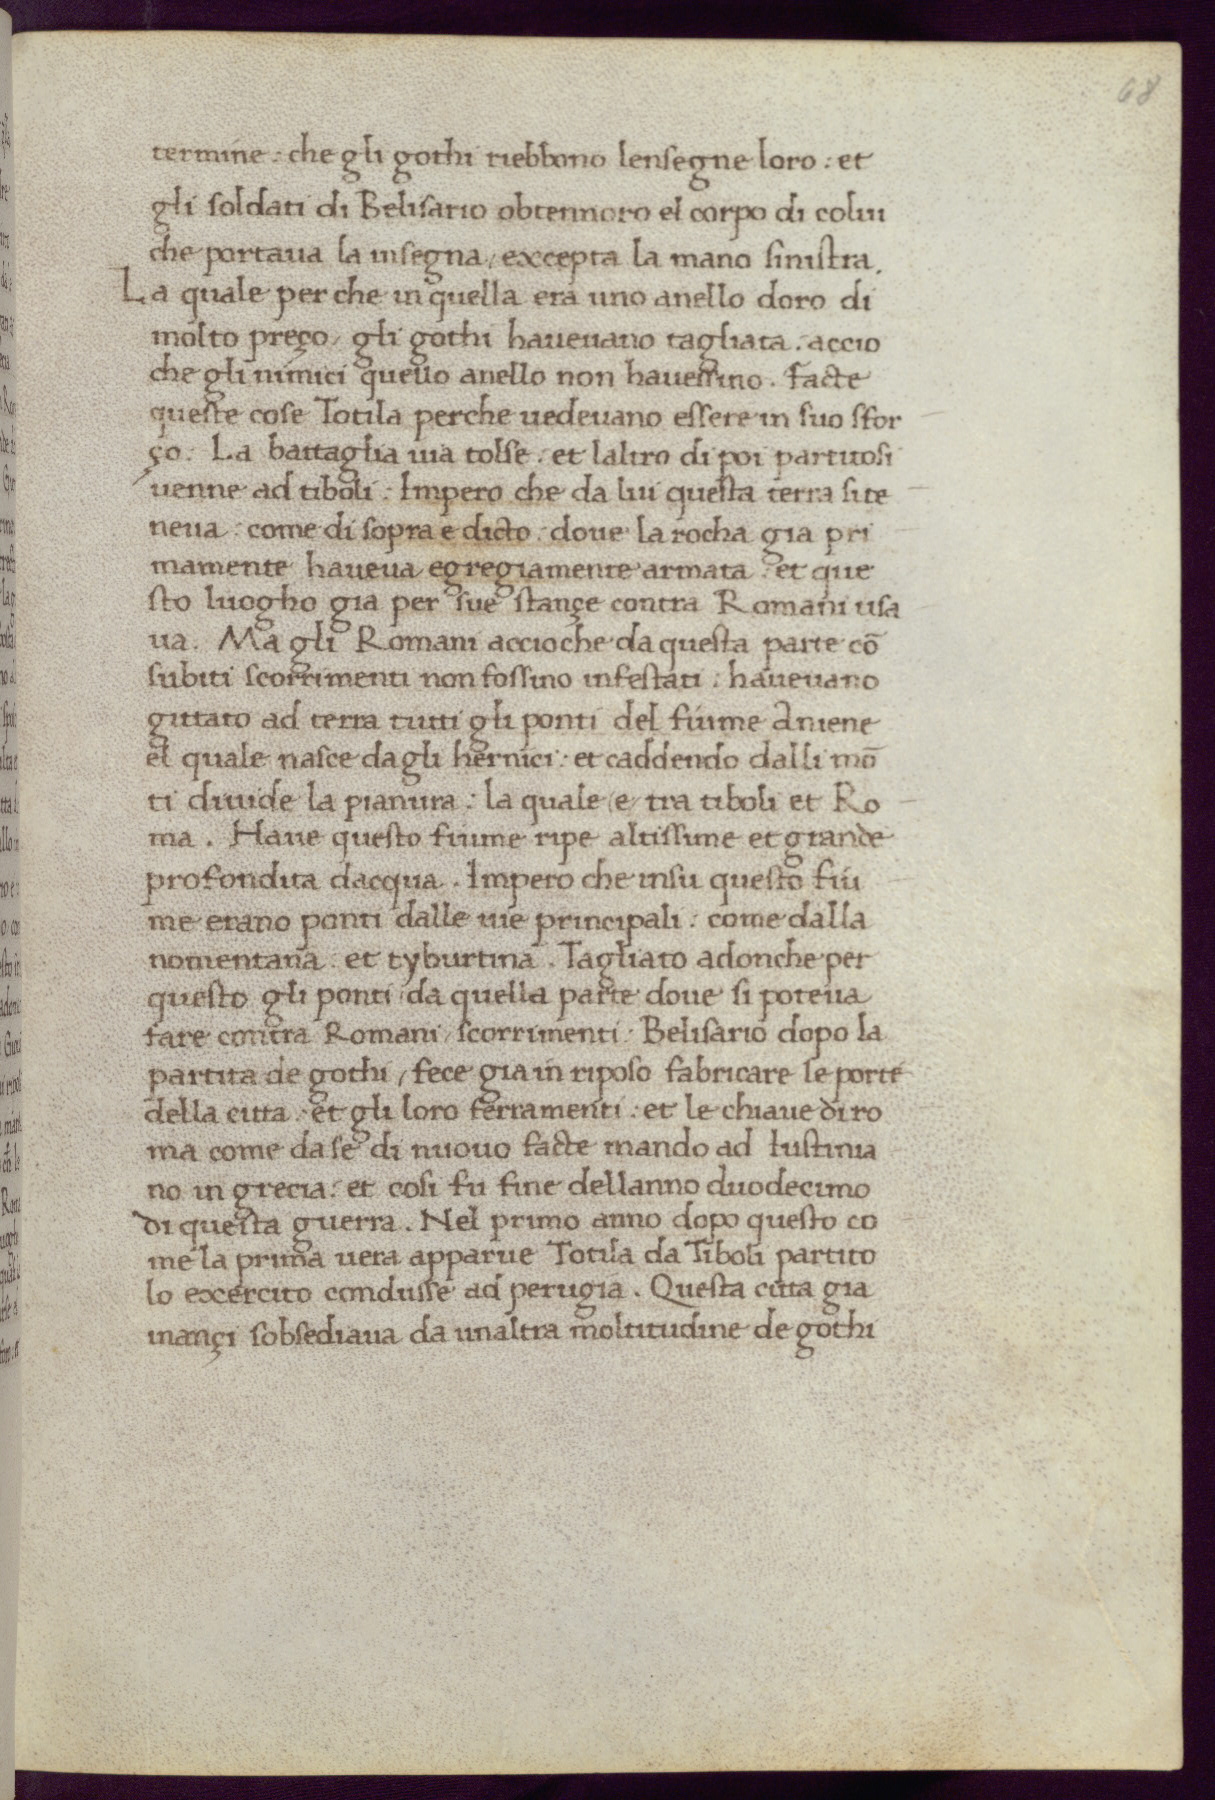 68
termine : che gli gothi riebbono lensegne loro : et
gli soldati di Belisario obtennoro el corpo di colui
che portaua la insegna / excepta la mano sinistra.
La quale per che in quella era uno anello doro di
molto preço / gli gothi haueuano tagliata . accio
che gli nimici quello anello non hauessino . facte
queste cose Totila perche uedeuano essere in suo sfor
ço . La battaglia uia tolse . et laltro di poi partuosi
uenne ad tiboli . Impero che da lui questa terra si te
neua : come di sopra e dicto . doue la rocha gia pri
mamente haueua egregiamente armata . et que
sto luogho gia per sue stançe contra Romani usa
ua . Ma gli Romani accioche da questa parte cō
subiti scorrimenti non fossino infestati : haueuano
gittato ad terra tutti gli ponti del fiume Aniene
el quale nasce dagli hernici : et caddendo dalli mō
ti diuide la pianura : la quale / e / tra tiboli et Ro
ma . Haue questo fiume ripe altissime et grande
profondita dacqua . Impero che insu questo fiu
me erano ponti dalle uie principali : come dalla
nomentana . et tyburtina . Tagliato adonche per
questo gli ponti / da quella parte doue si poteua
fare contra Romani / scorrimenti . Belisario dopo la
partita de gothi / fece gia in riposo fabricare le porte
della citta . et gli loro ferramenti . et le chiaue di ro
ma come da se di nuouo facte mando ad Iustinia
no in grecia : et cosi fu fine dellanno duodecimo
di questa guerra . Nel primo anno dopo questo co
me la prima uera apparue Totila da Tiboli partito
lo exercito condusse ad perugia . Questa citta gia
inançi sobsediaua da unaltra moltitudine de gothi